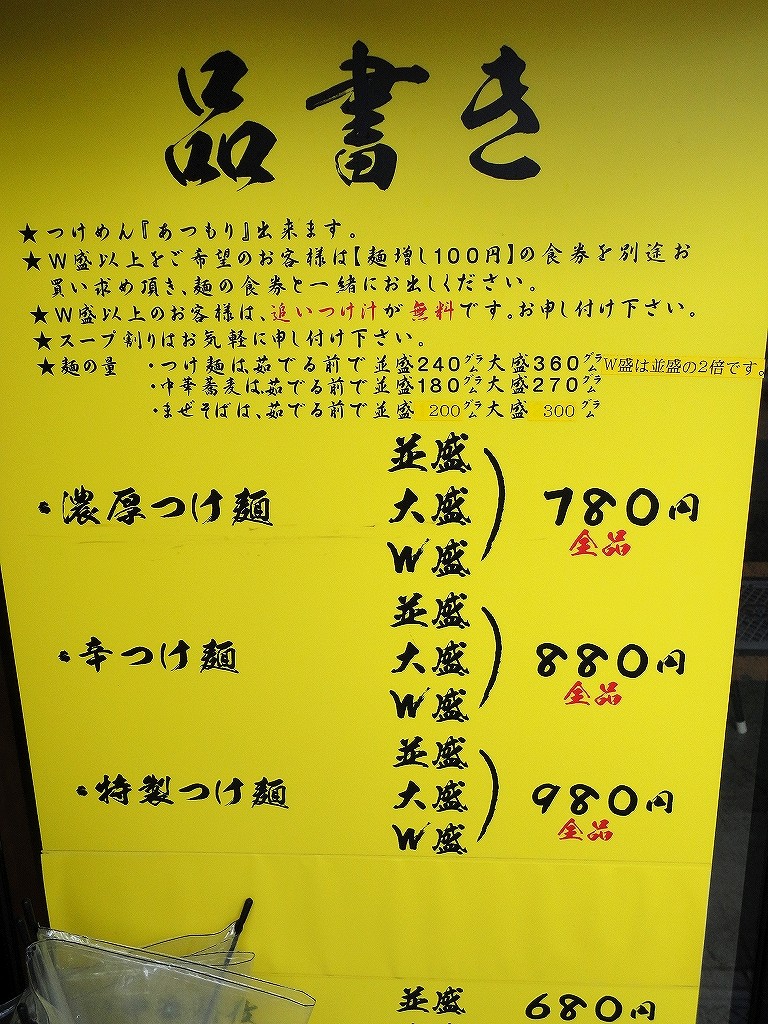 品書き
★つけめん『あつもり』出来ます。
★W盛以上をご希望のお客様は【麺増し100円】の食券を別途お
買い求め頂き、麺の食券と一緒にお出しください。
★W盛以上のお客様は、追いつけ汁が無料です。お申し付け下さい。
★スープ割りはお気軽に申し付け下さい。
★麺の量 ・つけ麺は茹でる前で並盛240グラム大盛360グラムW盛は並盛の2倍です。
・中華蕎麦は茹でる前で並盛180グラム大盛270グラム
・まぜそばは、茹でる前で並盛 200グラム大盛 300グラム
並盛
・濃厚つけ麺 大盛 780円
W盛 全品
並盛
・辛つけ麺 大盛 880円
W盛 全品
並盛
・特製つけ麺 大盛 980円
W盛 全品
並盛 680円